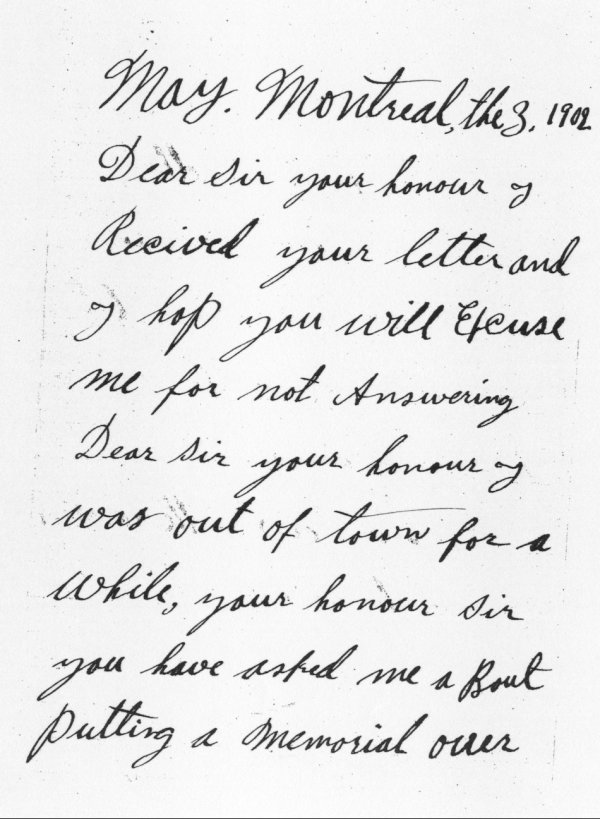 May. Montreal, the 3. 1902
Dear Sir your honour I
Recived your letter and
I hop you will Excuse
me for not Answering
Dear Sir your honour I
was out of town for a
While, your honour Sir
you have asked me a Bout
Putting a Memorial over